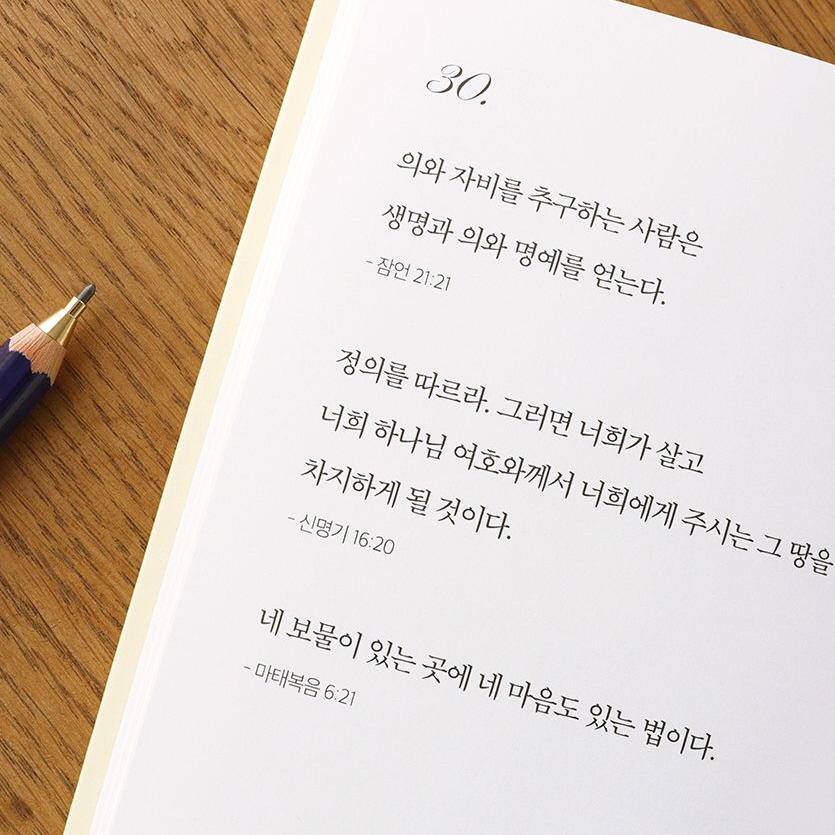 30.
의와 자비를 추구하는 사람은
생명과 의와 명예를 얻는다.
- 잠언 21:21
정의를 따르라. 그러면 너희가 살고
너희 하나님 여호와께서 너희에게 주시는 그 땅을
차지하게 될 것이다.
- 신명기 16:20
네 보물이 있는 곳에 네 마음도 있는 법이다.
- 마태복음 6:21